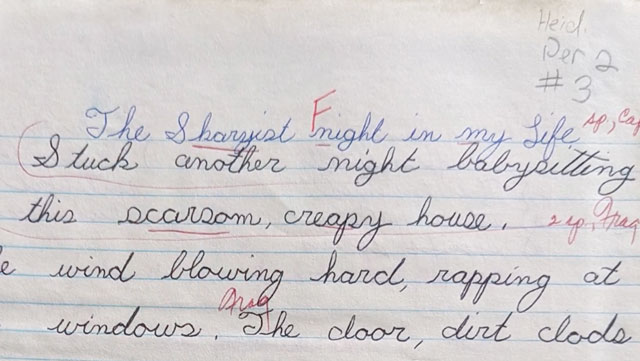 Heid.
Per 2
#3
F
The Skaryist night in my Life sp, Cap
Stuck another night babysitting
this scarsom, creapy house. 2 sp, Frag
e wind blowing hard, rapping at
Frag
windows. The door, dirt clods